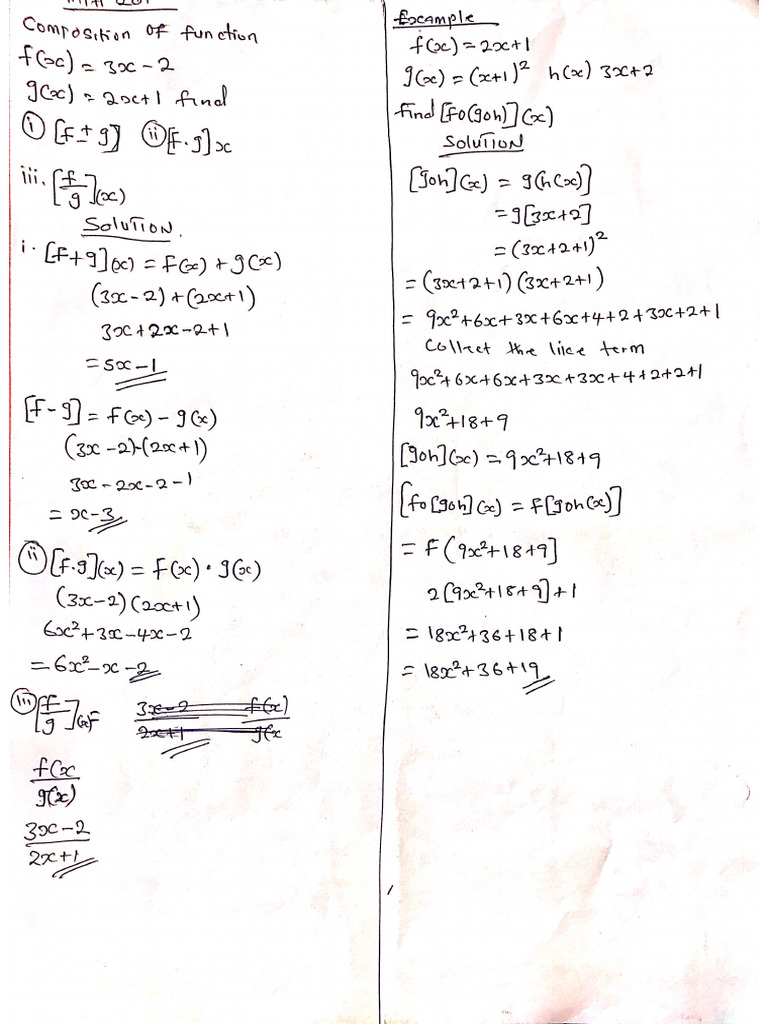 Composition of function
f(x) = 3x - 2
g(x) = 2x+1 find
(i) [f ± g] (ii) [f·g]x
iii. [f/g](x)
Solution.
i. [f+g](x) = f(x) + g(x)
(3x-2)+(2x+1)
3x+2x-2+1
= 5x-1
[f-g] = f(x) - g(x)
(3x-2)-(2x+1)
3x-2x-2-1
= x-3
(ii) [f·g](x) = f(x) · g(x)
(3x-2)(2x+1)
6x²+3x-4x-2
= 6x²-x-2
(iii) [f/g](x)=
f(x
g(x)
3x-2
2x+1
Example
f(x) = 2x+1
g(x) = (x+1)² h(x) 3x+2
find [fo(goh)](x)
Solution
[goh](x) = g(h(x)]
= g[3x+2]
= (3x+2+1)²
= (3x+2+1)(3x+2+1)
= 9x²+6x+3x+6x+4+2+3x+2+1
Collect the like term
9x²+6x+6x+3x+3x+4+2+2+1
9x²+18+9
[goh](x) = 9x²+18+9
[fo[goh](x) = f[goh(x)]
= f(9x²+18+9]
2[9x²+18+9]+1
= 18x²+36+18+1
= 18x²+36+19